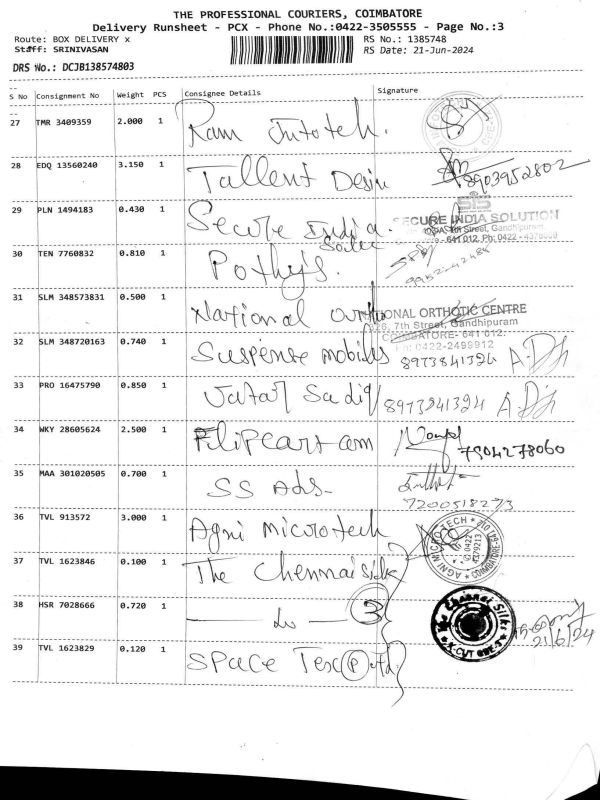 THE PROFESSIONAL COURIERS, COIMBATORE
Delivery Runsheet - PCX - Phone No.:0422-3505555 - Page No.:3
Route: BOX DELIVERY x RS No.: 1385748
Staff: SRINIVASAN RS Date: 21-Jun-2024
DRS No.: DCJB138574803
S No Consignment No Weight PCS Consignee Details Signature
27 TMR 3409359 2.000 1 Ram Autotech.
28 EDQ 13560240 3.150 1 Tallent Desin 8903952802
29 PLN 1494183 0.430 1 Secure India. SECURE INDIA SOLUTION
Street, Gandhipuram
641 012. Ph: 0422
30 TEN 7760832 0.810 1 Pothy's.
31 SLM 348573831 0.500 1 National ORTHOTIC CENTRE
7th Street, Gandhipuram
COIMBATORE- 641 012.
0422-2499912
32 SLM 348720163 0.740 1 Suspense mobiles 8973841324
33 PRO 16475790 0.850 1 Jafar Sadiq 8973841324
34 WKY 28605624 2.500 1 Flipcart am 7904278060
35 MAA 301020505 0.700 1 SS Ads. 7200518273
36 TVL 913572 3.000 1 Agni Microtech AGNI MICRO TECH
37 TVL 1623846 0.100 1 The Chennai Silks
38 HSR 7028666 0.720 1 3 The Chennai Silks 21/6/24
39 TVL 1623829 0.120 1 Space Tex (P) Ltd.